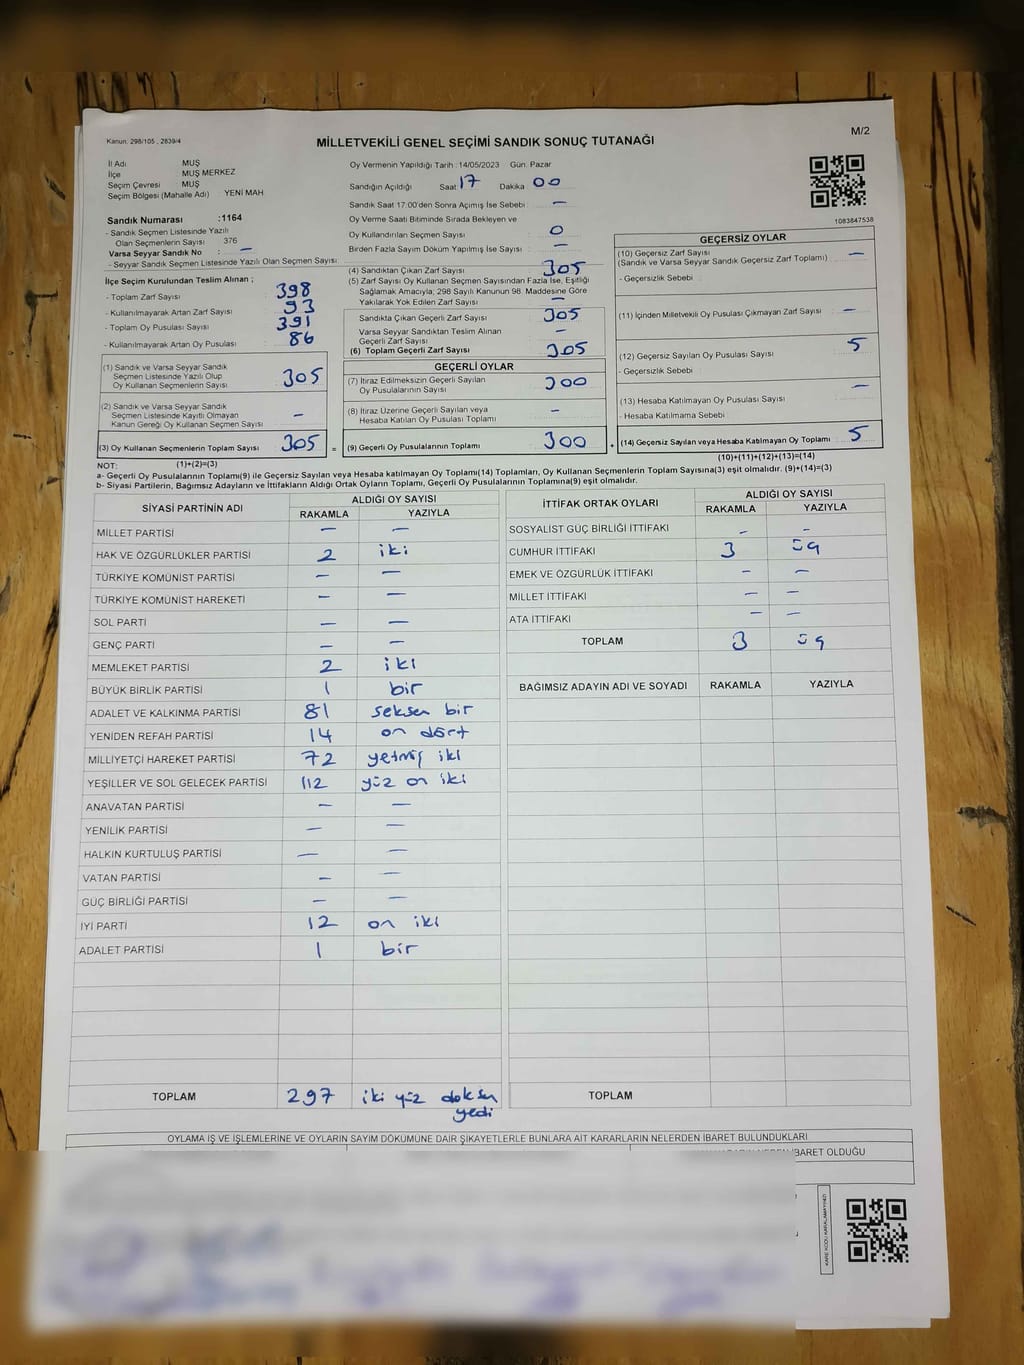 Kanun: 298/105 , 2839/4
MİLLETVEKİLİ GENEL SEÇİMİ SANDIK SONUÇ TUTANAĞI
M/2
İl Adı MUŞ
İlçe MUŞ MERKEZ
Seçim Çevresi MUŞ
Seçim Bölgesi (Mahalle Adı) : YENİ MAH
Sandık Numarası :1164
- Sandık Seçmen Listesinde Yazılı
Olan Seçmenlerin Sayısı 376
Varsa Seyyar Sandık No : –
- Seyyar Sandık Seçmen Listesinde Yazılı Olan Seçmen Sayısı:
İlçe Seçim Kurulundan Teslim Alınan ;
- Toplam Zarf Sayısı 398
- Kullanılmayarak Artan Zarf Sayısı 93
- Toplam Oy Pusulası Sayısı 391
- Kullanılmayarak Artan Oy Pusulası 86
(1) Sandık ve Varsa Seyyar Sandık
Seçmen Listesinde Yazılı Olup
Oy Kullanan Seçmenlerin Sayısı 305
(2) Sandık ve Varsa Seyyar Sandık
Seçmen Listesinde Kayıtlı Olmayan
Kanun Gereği Oy Kullanan Seçmen Sayısı –
(3) Oy Kullanan Seçmenlerin Toplam Sayısı 305 =
(1)+(2)=(3)
Oy Vermenin Yapıldığı Tarih : 14/05/2023 Gün: Pazar
Sandığın Açıldığı Saat 17 Dakika 00
Sandık Saat 17:00'den Sonra Açımış İse Sebebi : –
Oy Verme Saati Bitiminde Sırada Bekleyen ve
Oy Kullandırılan Seçmen Sayısı 0
Birden Fazla Sayım Döküm Yapılmış İse Sayısı –
(4) Sandıktan Çıkan Zarf Sayısı 305
(5) Zarf Sayısı Oy Kullanan Seçmen Sayısından Fazla İse, Eşitliği
Sağlamak Amacıyla; 298 Sayılı Kanunun 98. Maddesine Göre
Yakılarak Yok Edilen Zarf Sayısı –
Sandıkta Çıkan Geçerli Zarf Sayısı 305
Varsa Seyyar Sandıktan Teslim Alınan
Geçerli Zarf Sayısı –
(6) Toplam Geçerli Zarf Sayısı 305
GEÇERLİ OYLAR
(7) İtiraz Edilmeksizin Geçerli Sayılan
Oy Pusulalarının Sayısı 300
(8) İtiraz Üzerine Geçerli Sayılan veya
Hesaba Katılan Oy Pusulası Toplamı –
(9) Geçerli Oy Pusulalarının Toplamı 300 +
1083847538
GEÇERSİZ OYLAR
(10) Geçersiz Zarf Sayısı
(Sandık ve Varsa Seyyar Sandık Geçersiz Zarf Toplamı) –
- Geçersizlik Sebebi :
(11) İçinden Milletvekili Oy Pusulası Çıkmayan Zarf Sayısı –
(12) Geçersiz Sayılan Oy Pusulası Sayısı 5
- Geçersizlik Sebebi :
(13) Hesaba Katılmayan Oy Pusulası Sayısı –
- Hesaba Katılmama Sebebi :
(14) Geçersiz Sayılan veya Hesaba Katılmayan Oy Toplamı 5
(10)+(11)+(12)+(13)=(14)
NOT:
a- Geçerli Oy Pusulalarının Toplamı(9) ile Geçersiz Sayılan veya Hesaba katılmayan Oy Toplamı(14) Toplamları, Oy Kullanan Seçmenlerin Toplam Sayısına(3) eşit olmalıdır. (9)+(14)=(3)
b- Siyasi Partilerin, Bağımsız Adayların ve İttifakların Aldığı Ortak Oyların Toplamı, Geçerli Oy Pusulalarının Toplamına(9) eşit olmalıdır.
SİYASİ PARTİNİN ADI ALDIĞI OY SAYISI
RAKAMLA YAZIYLA
MİLLET PARTİSİ – –
HAK VE ÖZGÜRLÜKLER PARTİSİ 2 iki
TÜRKİYE KOMÜNİST PARTİSİ – –
TÜRKİYE KOMÜNİST HAREKETİ – –
SOL PARTİ – –
GENÇ PARTİ – –
MEMLEKET PARTİSİ 2 iki
BÜYÜK BİRLİK PARTİSİ 1 bir
ADALET VE KALKINMA PARTİSİ 81 seksen bir
YENİDEN REFAH PARTİSİ 14 on dört
MİLLİYETÇİ HAREKET PARTİSİ 72 yetmiş iki
YEŞİLLER VE SOL GELECEK PARTİSİ 112 yüz on iki
ANAVATAN PARTİSİ – –
YENİLİK PARTİSİ – –
HALKIN KURTULUŞ PARTİSİ – –
VATAN PARTİSİ – –
GÜÇ BİRLİĞİ PARTİSİ – –
İYİ PARTİ 12 on iki
ADALET PARTİSİ 1 bir
TOPLAM 297 iki yüz doksan
yedi
İTTİFAK ORTAK OYLARI ALDIĞI OY SAYISI
RAKAMLA YAZIYLA
SOSYALİST GÜÇ BİRLİĞİ İTTİFAKI – –
CUMHUR İTTİFAKI 3 üç
EMEK VE ÖZGÜRLÜK İTTİFAKI – –
MİLLET İTTİFAKI – –
ATA İTTİFAKI – –
TOPLAM 3 üç
BAĞIMSIZ ADAYIN ADI VE SOYADI RAKAMLA YAZIYLA
TOPLAM
OYLAMA İŞ VE İŞLEMLERİNE VE OYLARIN SAYIM DÖKÜMÜNE DAİR ŞİKAYETLERLE BUNLARA AİT KARARLARIN NELERDEN İBARET BULUNDUKLARI
İBARET OLDUĞU
KARE KODU KARALAMAYINIZ!